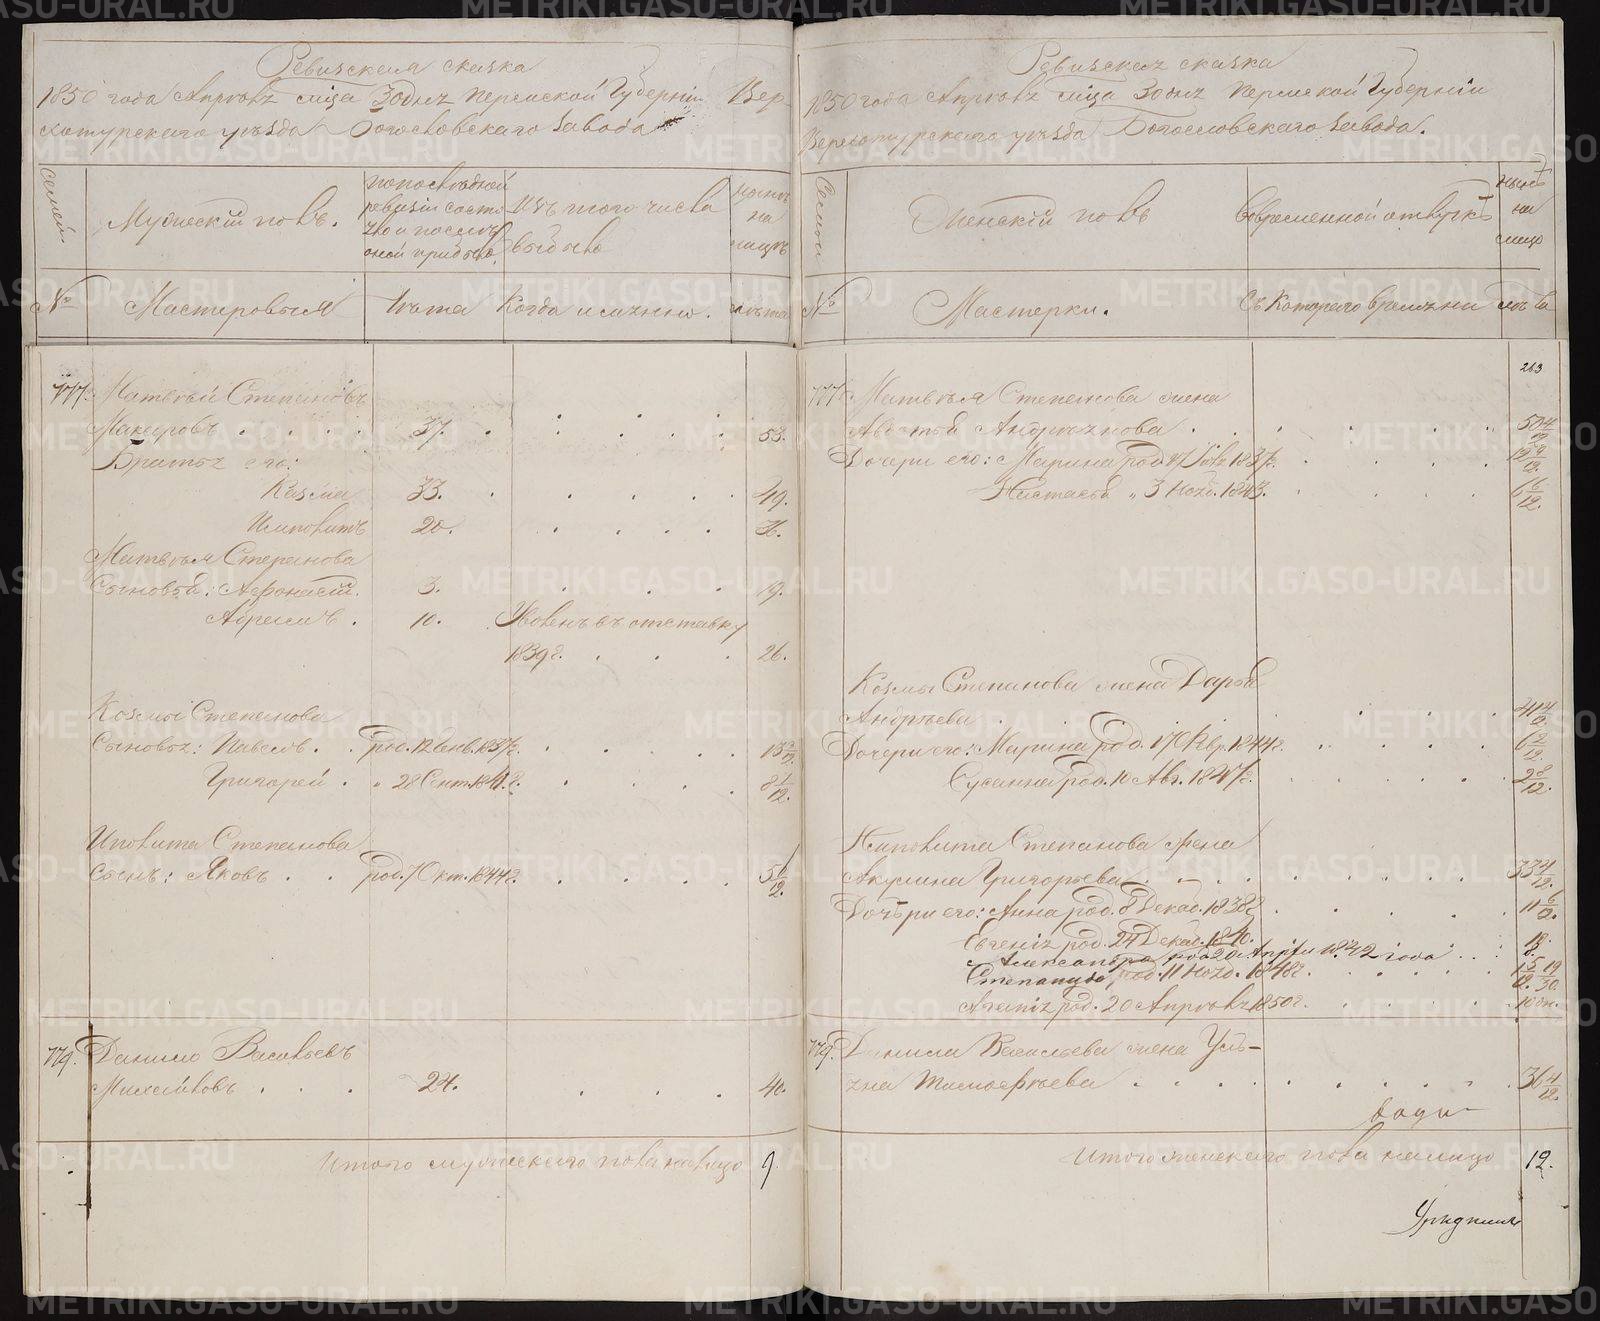 Ревизская сказка
1850 года Апрѣля мѣсца 30 дня Пермской Губерніи Вер-
хотурскаго уѣзда Богословскаго завода
Семей
Мужескій полъ.
по послѣдной
ревизіи состо
яло и послѣ
оной прибыло.
Изъ того числа
выбыло
нынѣ
на
лицѣ
№
Мастеровыя
лѣта
Когда имянно.
лѣта
777. Матвѣй Степановъ
Макаровъ . . . . 37. 53.
Братья его:
Казма 33. 49.
Ипполитъ 20. 36.
Матвѣя Степанова
Сыновья: Афонасій. 3. 19.
Абрамъ . 10. Уволенъ въ отставку
1839 г. 26.
Козмы Степанова
Сыновья: Павелъ. род. 12 Генв. 1837 г.
Григорей . „ 28 Сент. 1841 г. 8 7/12.
Иполита Степанова
Сынъ: Яковъ . . род. 7 Окт. 1844 г. 5 6/12.
779. Данило Васильевъ
Михайловъ . . . 24. 40.
Итого мужескаго пола на лицо 9.
Ревизская сказка
1850 года Апрѣля мѣсца 30 дня Пермской Губерніи
Верхотурскаго уѣзда Богословскаго завода.
Семьи
Женскій полъ
Во временной отлучкѣ
нынѣ
на
лицо
№
Мастерки.
Съ котораго времѣни
лѣта
263
777. Матвѣя Степанова жена
Авдотья Андреянова 50 4/12
Дочери его: Марина род. 1837 г.
Настасья „ 3 Нояб. 1843. 6 6/12.
Козмы Степанова жена Дарья
Андрѣева 41
Дочери его: Марина род. 17 1844 г.
Сусанна род. 10 Авг. 1847 г. 2 8/12.
Ипполита Степанова жена
Акулина Григорьева 33 4/12.
Дочѣри его: Анна род. 8 Декаб. 1838 г. 11
Евгенія род. 24 Декаб. 1840.
Александра род 20 Апрѣля 1842 года 8.
Степанида, род. 11 Нояб. 1848 г. 1 5/12 19/30.
род. 20 Апрѣля 1850 г. 10 дн.
779. Данила Васильева жена Улья-
на Тимофѣева 36 4/12.
Итого женскаго пола на лицо 12.
METRIKI.GASO-URAL.RU